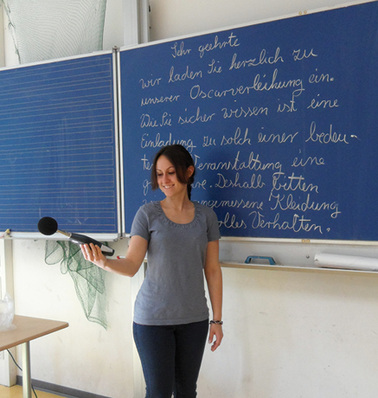 Sehr geehrte
wir laden Sie herzlich zu
unserer Oscarverleihung ein.
Wie Sie sicher wissen ist eine
Einladung zu solch einer bedeu-
Veranstaltung eine
Deshalb bitten
Kleidung
Verhalten.